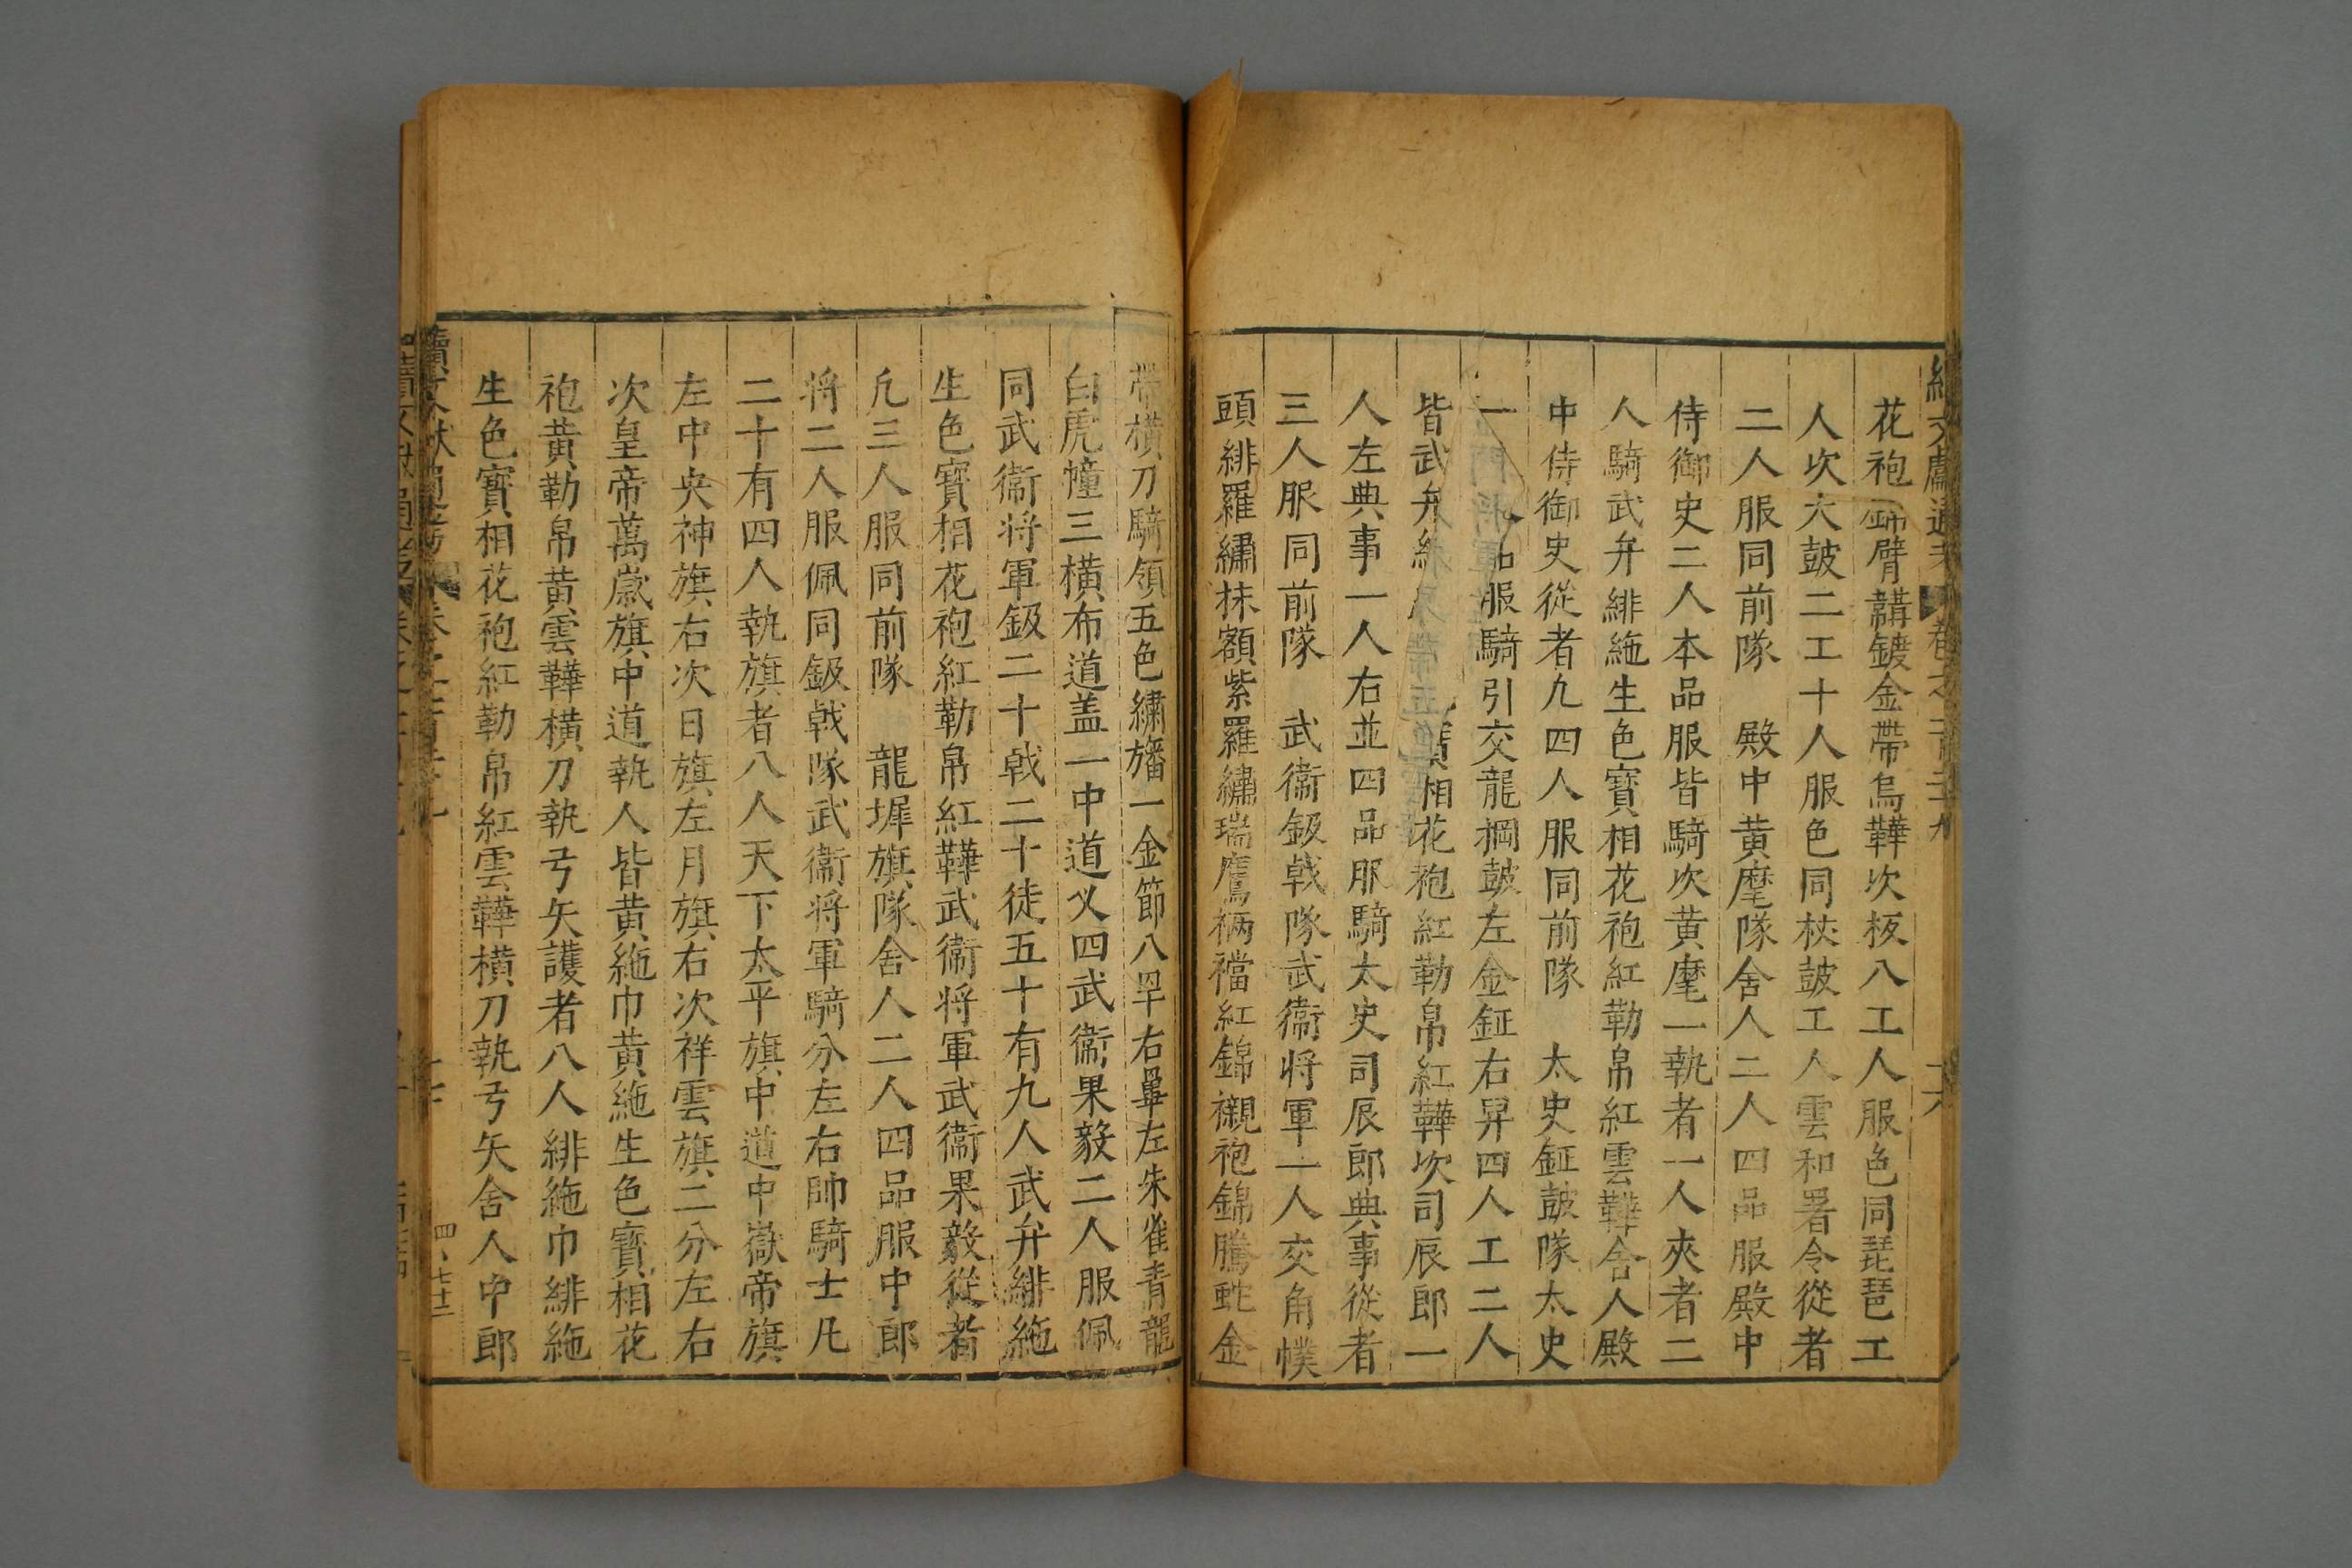 花袍錦臂韝鍍金帶烏鞾次板八工人服色同琵琶工
人次大鼓二工十人服色同杖鼓工人雲和署令從者
二人服同前隊　殿中黄麾隊舍人二人四品服殿中
侍御史二人本品服皆騎次黄麾一執者一人夾者二
人騎武弁緋絁生色寳相花袍紅勒帛紅雲鞾舍人殿
中侍御史從者凡四人服同前隊　太史鉦鼓隊太史
一人品服騎引交龍棡鼓左金鉦右舁四人工二人
皆武弁緋寳相花袍紅勒帛紅鞾次司辰郎一
人左典事一人右並四品服騎太史司辰郎典事從者
三人服同前隊　武衞鈒戟隊武衞将軍一人交角幞
頭緋羅繡抹額紫羅繡瑞鷹裲襠紅錦襯袍錦騰蛇金
帶横刀騎領五色繡旛一金節八罕右畢左朱雀青龍
白虎幢三横布道盖一中道义四武衞果毅二人服佩
同武衞将軍鈒二十戟二十徒五十有九人武弁緋絁
生色寳相花袍紅勒帛紅鞾武衞将軍武衞果毅從者
凡三人服同前隊　龍墀旗隊舍人二人四品服中郎
将二人服佩同鈒戟隊武衞将軍騎分左右帥騎士凡
二十有四人執旗者八人天下太平旗中道中嶽帝旗
左中央神旗右次日旗左月旗右次祥雲旗二分左右
次皇帝萬歲旗中道執人皆黄絁巾黄絁生色寳相花
袍黄勒帛黄雲鞾横刀執弓矢護者八人緋絁巾緋絁
生色寳相花袍紅勒帛紅雲鞾横刀執弓矢舍人中郎
四、七十二